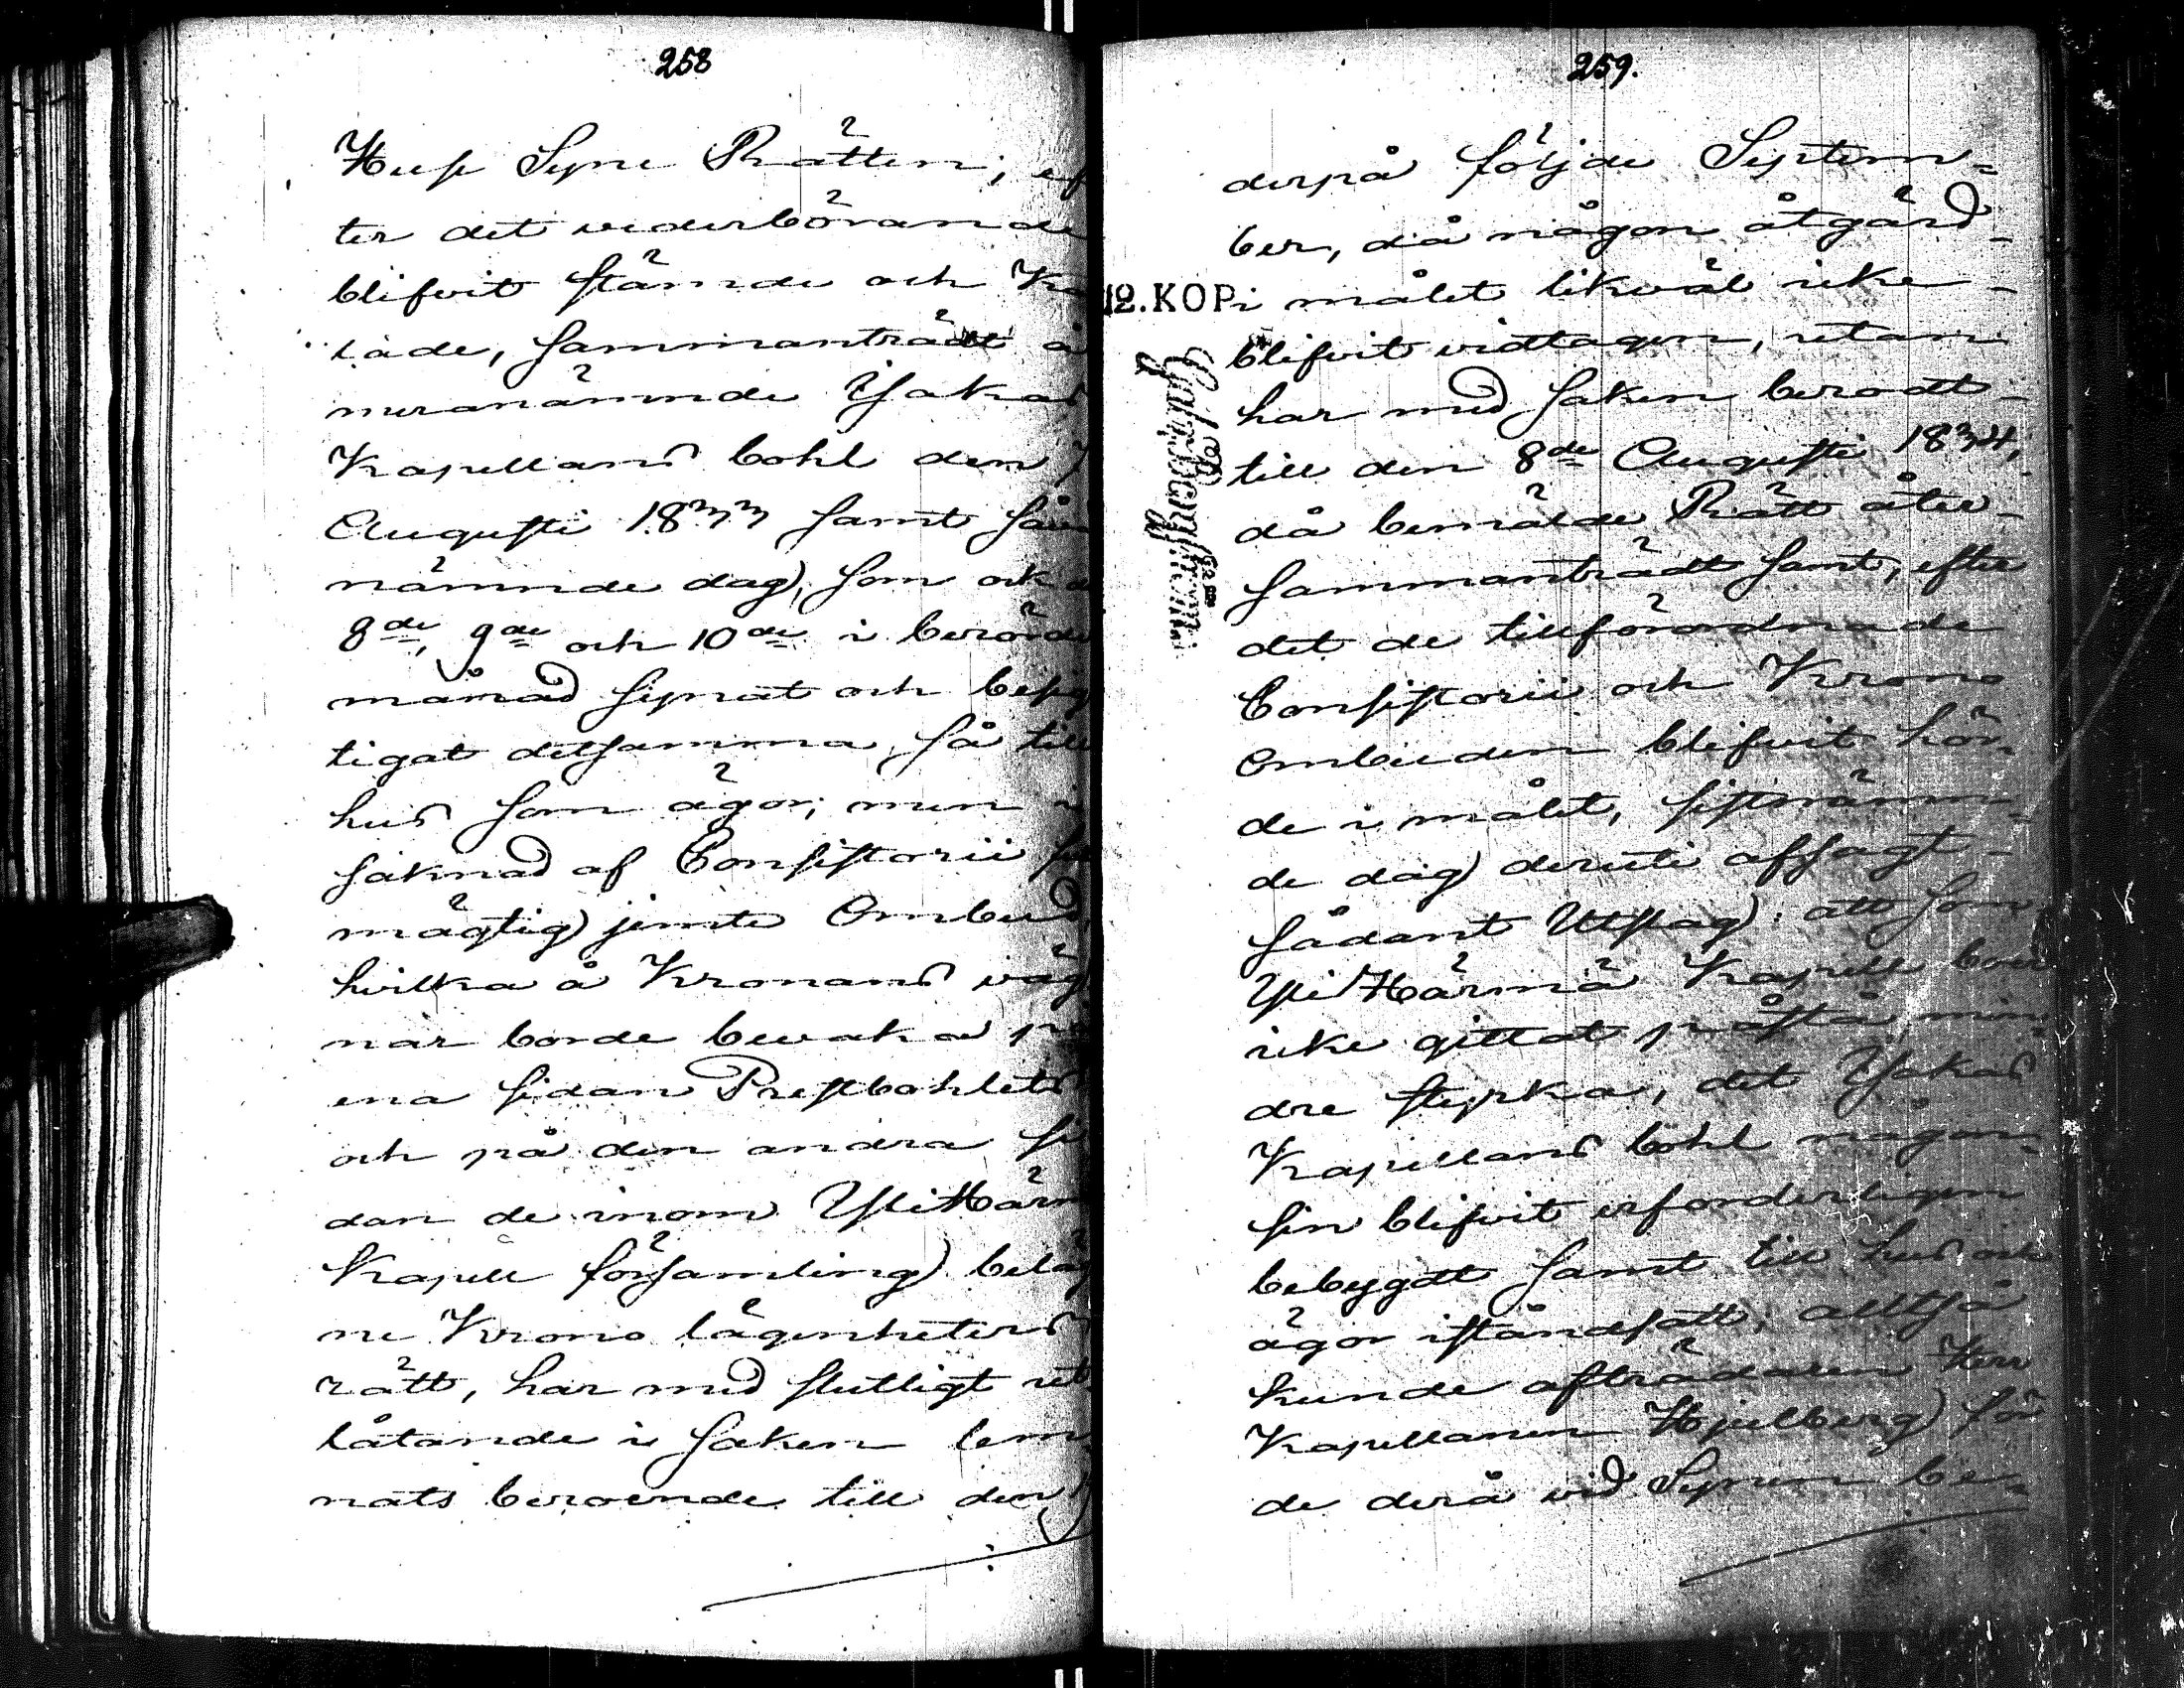 258
Hus Syne Rätten, ef
ter det vederbörande
blifvit stämde och Kal
lade, sammanträdt å
meranämnde Ysakas
Kapellans bohl den 7
Augusti 1833 samt så
nämnde dag, som ock d
8de, 9de och 10de i berörde
månad synat och besig
tigat detsamma så till
hus som ägor; men i
saknad af Consistorii full
mägtig jemte Ombud,
hvilka å Kronans väg
nar borde bevaka på
ena sidan Prestbohlets
och på den andra si
dan de inom YliHärmä
Kapell församling beläg
ne Krono lägenheters
rätt, har med slutligt ut
låtande i saken lem
nats beroende till den
259.
derpå följde Septem-
ber, då någon åtgärd
12. KOP
i målet likväl icke
blifvit vidtagen, utan
har med saken berodt
till den 8de Augusti 1834,
då bemälde Rätt åter
sammanträdt samt, efter
det de tillförordnade
Consistorii och Krono
Ombuden blifvit hör-
de i målet, sistnämn-
de dag deruti afsagt
sådant Utslag: att som
YliHärmä Kapell boer
icke gittat påstå, min-
dre styrka, det Ysakas
Kapellans bohl någon-
sin blifvit erforderligen
bebygdt samt till hus och
ägor iståndsatt; alltså
kunde afträdaren Herr
Kapellanen Hjelberg för
de derå vid Synen be-